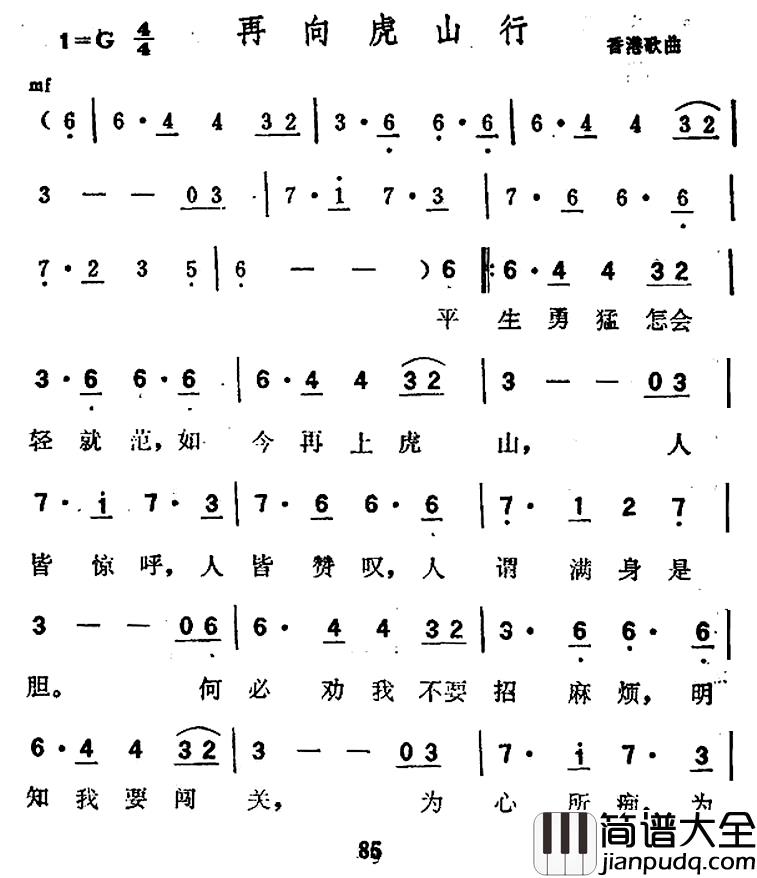 再向虎山行
1=G 4/4
香港歌曲
mf
( 6 | 6 · 4 4 3 2 | 3 · 6 6 · 6 | 6 · 4 4 3 2 |
3 — — 0 3 | 7 · i 7 · 3 | 7 · 6 6 · 6 |
7 · 2 3 5 | 6 — — ) 6 ‖: 6 · 4 4 3 2 |
平 生 勇 猛 怎会
3 · 6 6 · 6 | 6 · 4 4 3 2 | 3 — — 0 3 |
轻 就 范，如 今 再 上 虎 山， 人
7 · i 7 · 3 | 7 · 6 6 · 6 | 7 · 1 2 7 |
皆 惊 呼，人 皆 赞 叹，人 谓 满 身 是
3 — — 0 6 | 6 · 4 4 3 2 | 3 · 6 6 · 6 |
胆。 何 必 劝 我 不要 招 麻 烦，明
6 · 4 4 3 2 | 3 — — 0 3 | 7 · i 7 · 3 |
知 我 要 闯 关， 为 心 所 痴，为
85
简谱大全
jianpudq.com